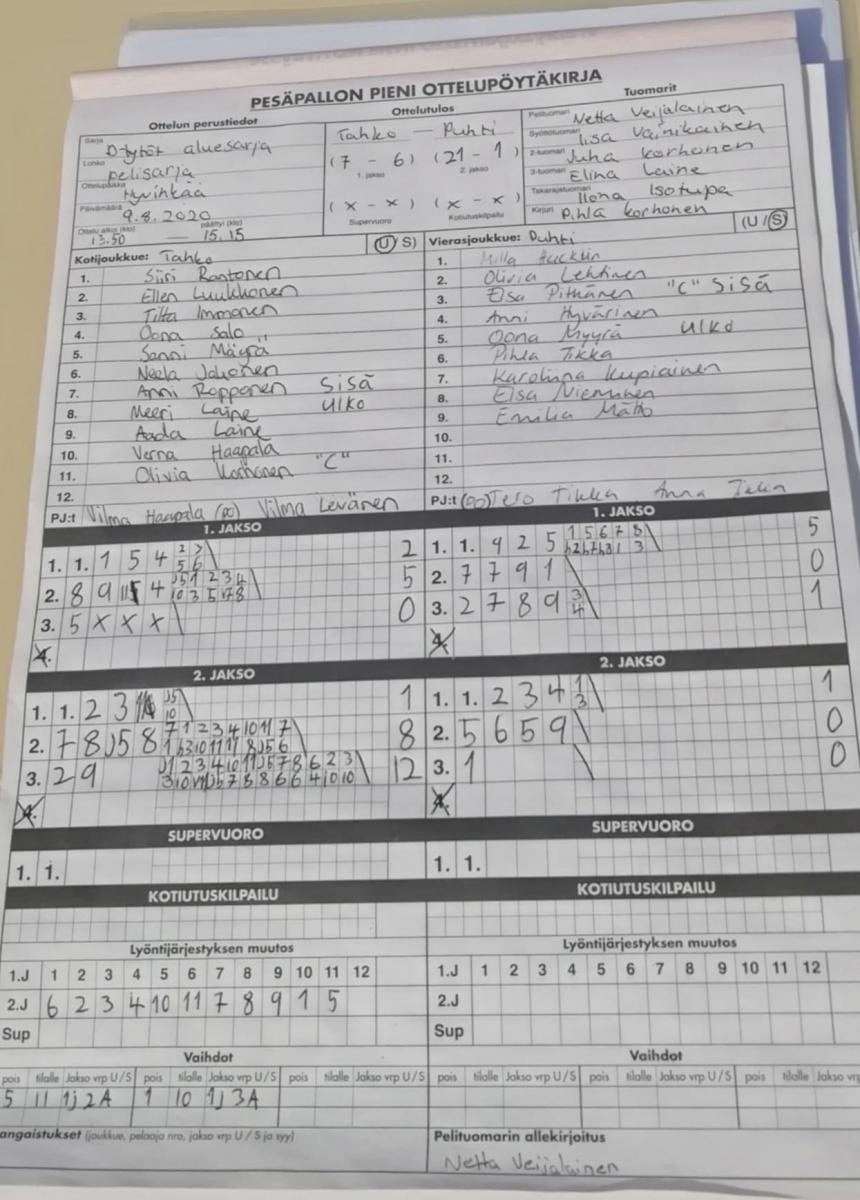 PESÄPALLON PIENI OTTELUPÖYTÄKIRJA
Ottelun perustiedot
Sarja D-tytöt aluesarja
Lohko pelisarja
Ottelupaikka Hyvinkää
Päivämäärä 9.8.2020
Ottelu alkoi (klo) päättyi (klo)
13.50 — 15.15
Ottelutulos
Tahko — Puhti
(7 - 6) (21 - 1)
1. jakso 2. jakso
(x - x) (x - x)
Supervuoro Kotiutuskilpailu
Tuomarit
Pelituomari Netta Veijalainen
Syöttötuomari Iisa Vainikainen
2-tuomari Juha Korhonen
3-tuomari Elina Laine
Takarajatuomari Ilona Isotupa
Kirjuri Pihla Korhonen
Kotijoukkue: Tahko (U/S)
1. Siiri Rantonen
2. Ellen Luukkonen
3. Tilta Immonen
4. Oona Salo
5. Sanni Mäyrä
6. Neela Jokonen
7. Anni Ropponen sisä
8. Meeri Laine ulko
9. Aada Laine
10. Verna Haapala
11. Olivia Korhonen "C"
12.
PJ:t Vilma Haapala (oo) Vilma Levänen
Vierasjoukkue: Puhti (U/S)
1. Milla
2. Olivia Lehtinen
3. Elsa Pitkänen "C" sisä
4. Anni Hyvärinen
5. Oona Myyrä ulko
6. Pihla Tikka
7. Karoliina Kupiainen
8. Elsa Nieminen
9. Emilia
10.
11.
12.
PJ:t (oo) Tero Tikka Anna
1. JAKSO
1. 1. 1 5 4 2
2. 8 9 4 5
3. 5 x x x 0
4.
1. JAKSO
1. 1. 9 2 5 1 5 6 7 8 5
2. 7 7 9 1 0
3. 2 7 8 9 3 4 1
4.
2. JAKSO
1. 1. 2 3 1
2. 7 8 5 8 7 1 2 3 4 10 11 7 8
3. 2 9 12
4.
2. JAKSO
1. 1. 2 3 4 1 3 1
2. 5 6 5 9 0
3. 1 0
4.
SUPERVUORO
1. 1.
SUPERVUORO
1. 1.
KOTIUTUSKILPAILU
KOTIUTUSKILPAILU
Lyöntijärjestyksen muutos
1.J 1 2 3 4 5 6 7 8 9 10 11 12
2.J 6 2 3 4 10 11 7 8 9 1 5
Sup
Lyöntijärjestyksen muutos
1.J 1 2 3 4 5 6 7 8 9 10 11 12
2.J
Sup
Vaihdot
pois tilalle Jakso vrp U/S pois tilalle Jakso vrp U/S pois tilalle Jakso vrp U/S
5 11 1j 2A 1 10 1j 3A
Vaihdot
pois tilalle Jakso vrp U/S pois tilalle Jakso vrp U/S pois tilalle Jakso vrp
angaistukset (joukkue, pelaaja nro, jakso vrp U/S ja syy)
Pelituomarin allekirjoitus
Netta Veijalainen